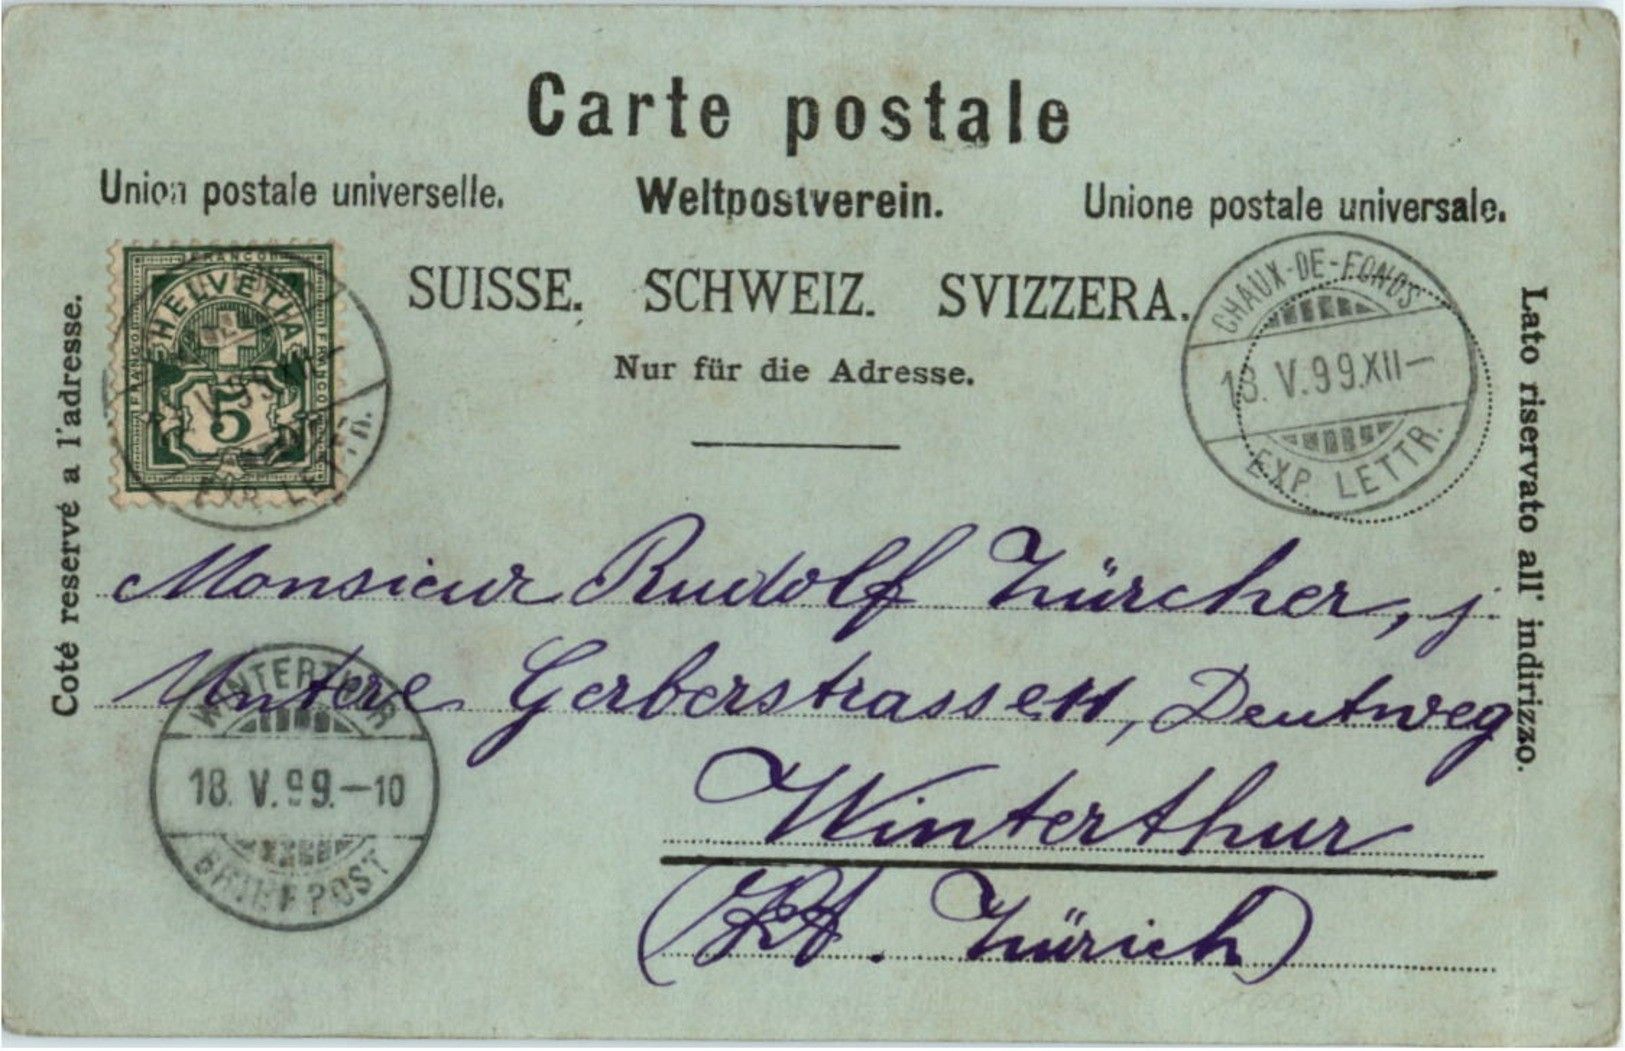 Carte postale
Union postale universelle. Weltpostverein. Unione postale universale.
SUISSE. SCHWEIZ. SVIZZERA.
Nur für die Adresse.
Coté reservé a l'adresse.
Lato riservato all' indirizzo.
FRANCO
HELVETIA
5
EXP. LETTR.
CHAUX-DE-FONDS
18. V. 99. XII—
EXP. LETTR.
Monsieur Rudolf Zürcher, j.
Untere Gerberstrassen, Deutweg
Winterthur
(Kt. Zürich)
WINTERTHUR
18. V. 99.—10
BRIEFPOST